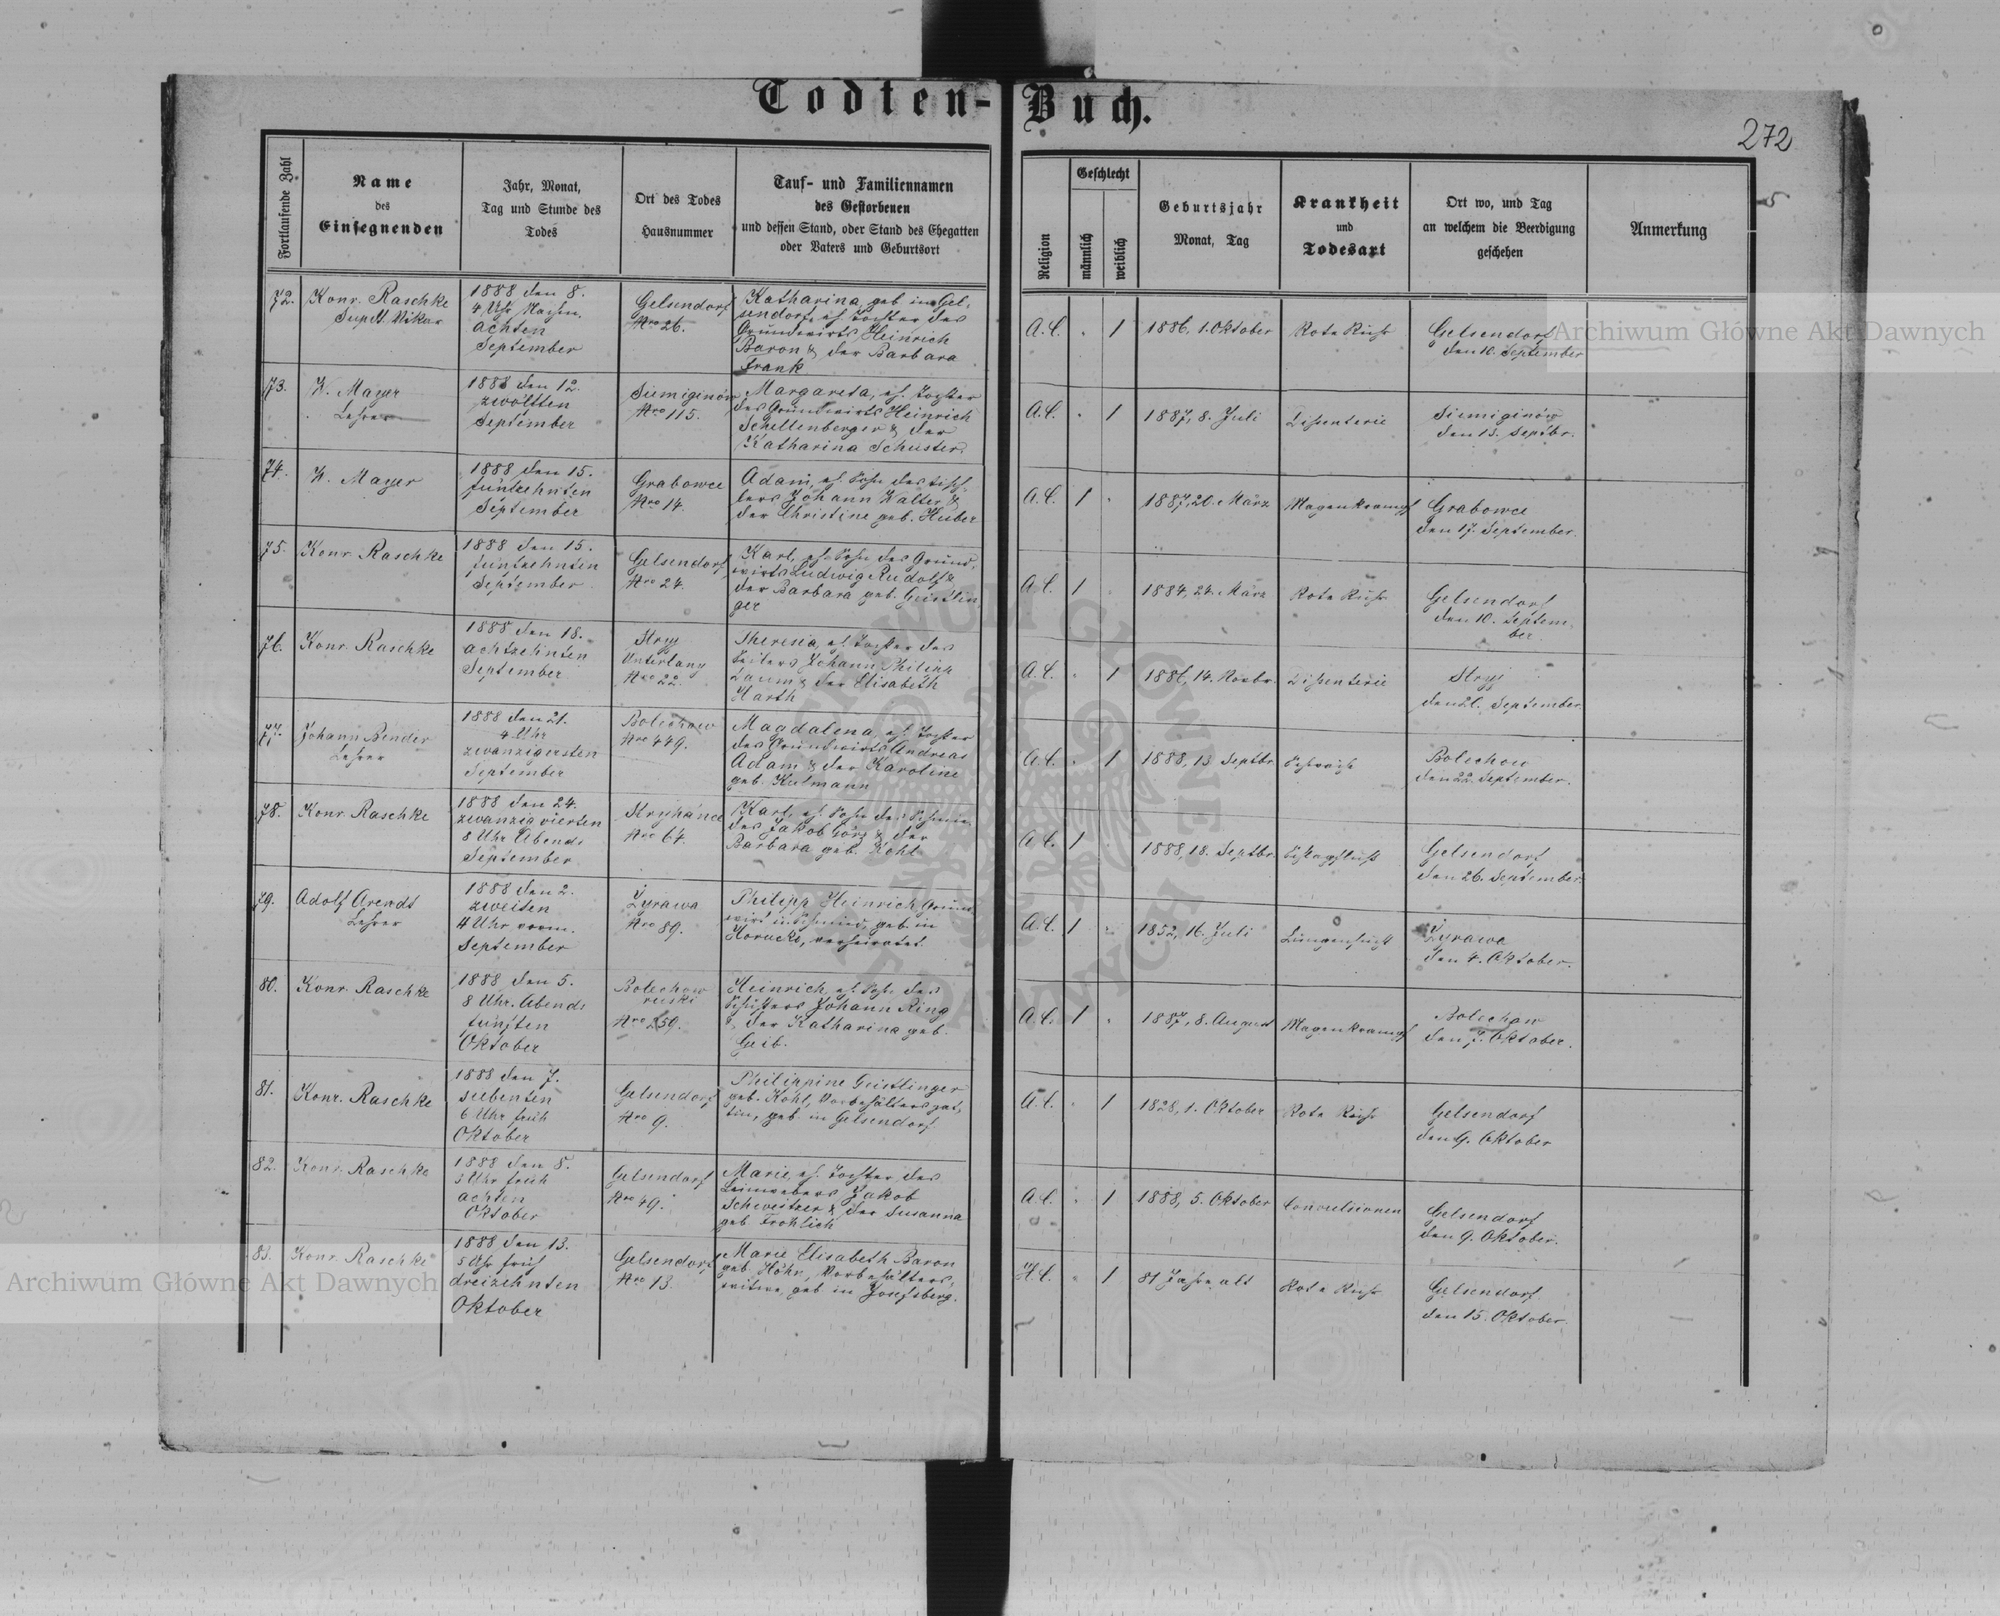 Todten-Buch.
272
Fortlaufende Zahl
Name
des
Einsegnenden
Jahr, Monat,
Tag und Stunde des
Todes
Ort des Todes
Hausnummer
Tauf- und Familiennamen
des Gestorbenen
und dessen Stand, oder Stand des Ehegatten
oder Vaters und Geburtsort
Religion
Geschlecht
männlich
weiblich
Geburtsjahr
Monat, Tag
Krankheit
und
Todesart
Ort wo, und Tag
an welchem die Beerdigung
geschehen
Anmerkung
72.
Konr. Raschke
Suptl. Vikar
1888 den 8.
4 Uhr Nachm.
achten
September
Gelsendorf
Nro 26.
Katharina, geb. in Gel-
sendorf, eh. Tochter des
Grundwirts Heinrich
Baron & der Barbara
Frank
A.C.
1
1886, 1. Oktober
Rote Ruhr
Gelsendorf
den 10. September
73.
W. Mayer
Lehrer
1888 den 12.
zwölften
September
Siemiginów
Nro 115.
Margareta, eh. Tochter
des Grundwirts Heinrich
Schellenberger & der
Katharina Schuster.
A.C.
1
1887, 8. Juli
Dissenterie
Siemiginów
den 13. Septbr.
74.
W. Mayer
1888 den 15.
fünfzehnten
September
Grabowce
Nro 14.
Adam, eh. Sohn des Tisch-
lers Johann Walter &
der Christine geb. Huber
A.C.
1
1887, 20. März
Magenkrampf
Grabowce
den 17. September.
75.
Konr. Raschke
1888 den 15.
fünfzehnten
September
Gelsendorf
Nro 24.
Karl, eh. Sohn des Grund-
wirts Ludwig Rudolf &
der Barbara geb. Geistlin-
ger
A.C.
1
1884, 24. März
Rote Ruhr
Gelsendorf
den 10. Septem-
ber
76.
Konr. Raschke
1888 den 18.
achtzehnten
September
Stryj
Unterlany
Nro 22.
Theresia, eh. Tochter des
Johann Philipp
& der Elisabeth
Harth
A.C.
1
1886, 14. Novbr.
Dissenterie
Stryj
den 20. September.
77.
Johann Bender
Lehrer
1888 den 21.
4 Uhr
zwanzigersten
September
Bolechow
Nro 449.
Magdalena, eh. Tochter
des Grundwirts Andreas
Adam & der Karoline
geb. Kulmann
A.C.
1
1888, 13 Septbr.
Bolechow
den 22. September.
78.
Konr. Raschke
1888 den 24.
zwanzig vierten
8 Uhr Abends
September
Stryhance
Nro 64.
Karl, eh. Sohn des Schmie-
des Jakob Görz & der
Barbara geb. Kohl
A.C.
1
1888, 18. Septbr.
Schlagfluß
Gelsendorf
den 26. September.
79.
Adolf Arendt
Lehrer
1888 den 2.
zweiten
4 Uhr vorm.
September
Żyrawa
Nro 89.
Philipp Heinrich Grund-
wirt u. Schmied, geb. in
verheiratet.
A.C.
1
1852, 16. Juli
Lungensucht
Żyrawa
den 4. Oktober.
80.
Konr. Raschke
1888 den 5.
8 Uhr. Abends
fünften
Oktober
Bolechow
ruski
Nro 259.
Heinrich, eh. Sohn des
Johann Ring
& der Katharina geb.
Geib.
A.C.
1
1887, 8. August
Magenkrampf
Bolechow
den 7. Oktober.
81.
Konr. Raschke
1888 den 7.
siebenten
6 Uhr früh
Oktober
Gelsendorf
Nro 9.
Philippine Geistlinger
geb. Kohl, Vorbehältersgat-
tin, geb. in Gelsendorf
A.C.
1
1828, 1. Oktober
Rote Ruhr
Gelsendorf
den 9. Oktober
82.
Konr. Raschke
1888 den 8.
5 Uhr früh
achten
Oktober
Gelsendorf
Nro 49.
Marie, eh. Tochter des
Leinwebers Jakob
Schweitzer & der Susanna
geb. Fröhlich
A.C.
1
1888, 5. Oktober
Convulsionen
Gelsendorf
den 9. Oktober.
83.
Konr. Raschke
1888 den 13.
5 Uhr früh
dreizehnten
Oktober
Gelsendorf
Nro 13.
Marie Elisabeth Baron
geb. Höhn, Vorbehälters-
witwe, geb. in Josefsberg.
H.C.
1
81 Jahre alt
Rote Ruhr
Gelsendorf
den 15. Oktober.
Archiwum Główne Akt Dawnych
Archiwum Główne Akt Dawnych
ARCHIWUM GŁÓWNE AKT DAWNYCH